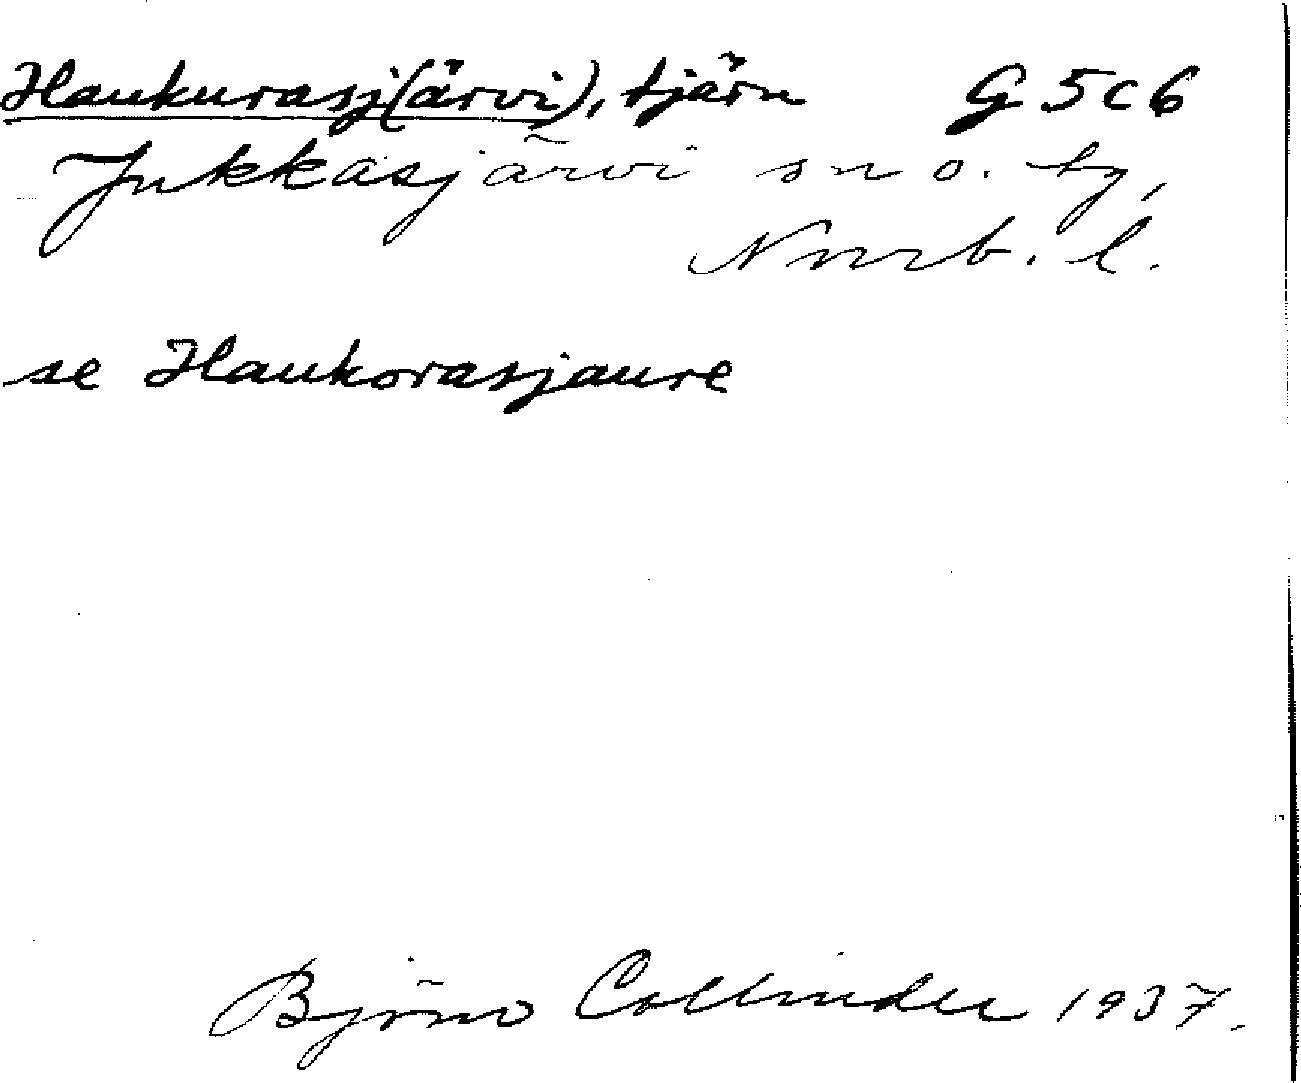 Haukurasj(ärvi), tjärn G 5 c 6
Jukkasjärvi sn o. tg,
Nrrb. l.
se Haukorasjaure
Björn Collinder 1937.